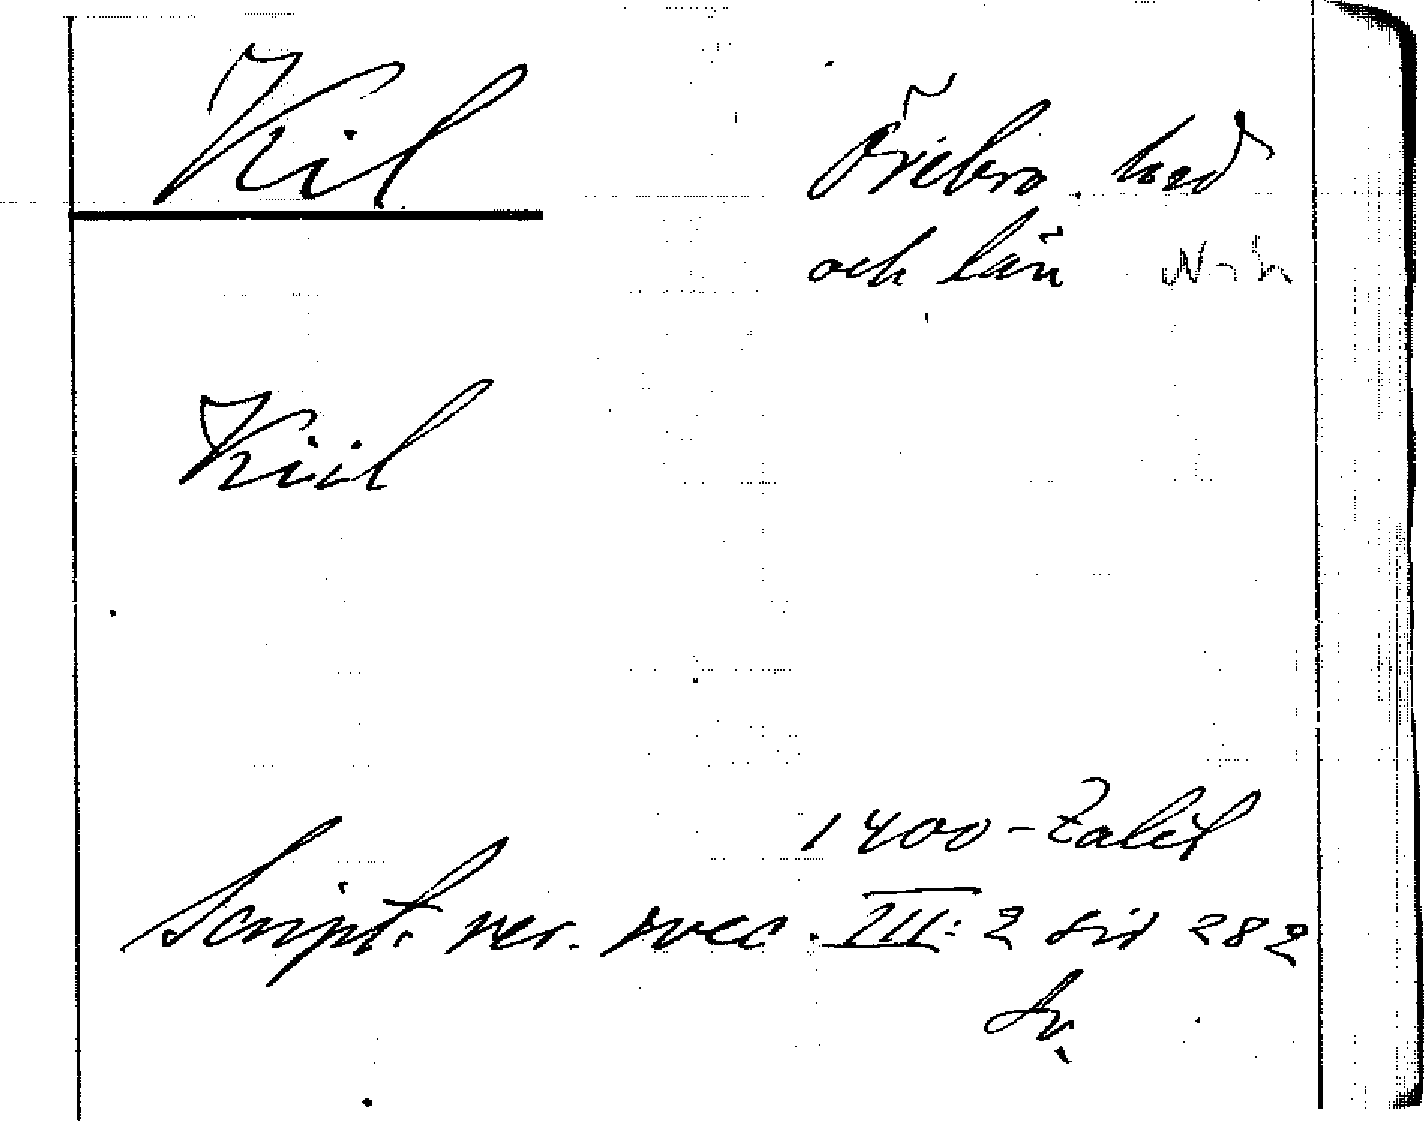 Kil
Örebro hrd
och län
Kiil
1400-talet
Script. rer. svec. III: 2 sid 282